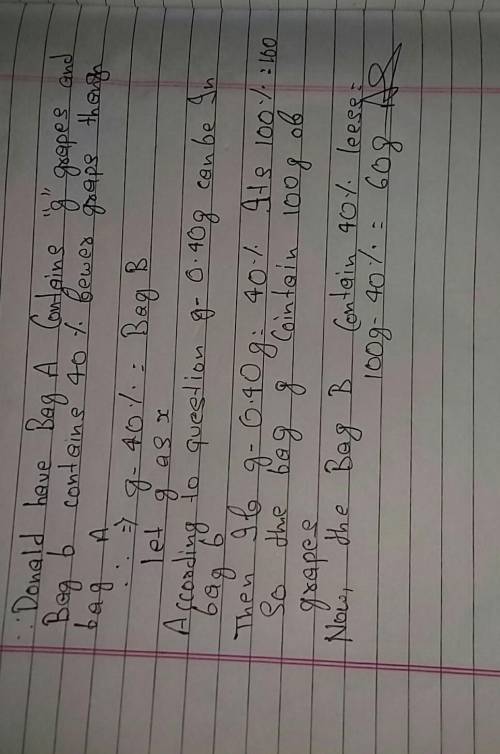 ∴ Donald have Bag A Contains "g" grapes and
Bag b contains 40 % bewer graps than
bag A
∴ ⇒ g - 40 % = Bag B
let g as x
According to question g - 0.40g can be In
bag b
Then Ib g - 0.40g = 40 % Its 100 % = 100
So the bag g Cointain 100g ob
grapes
Now, the Bag B Contain 40% leess =
100g - 40 % = 60g